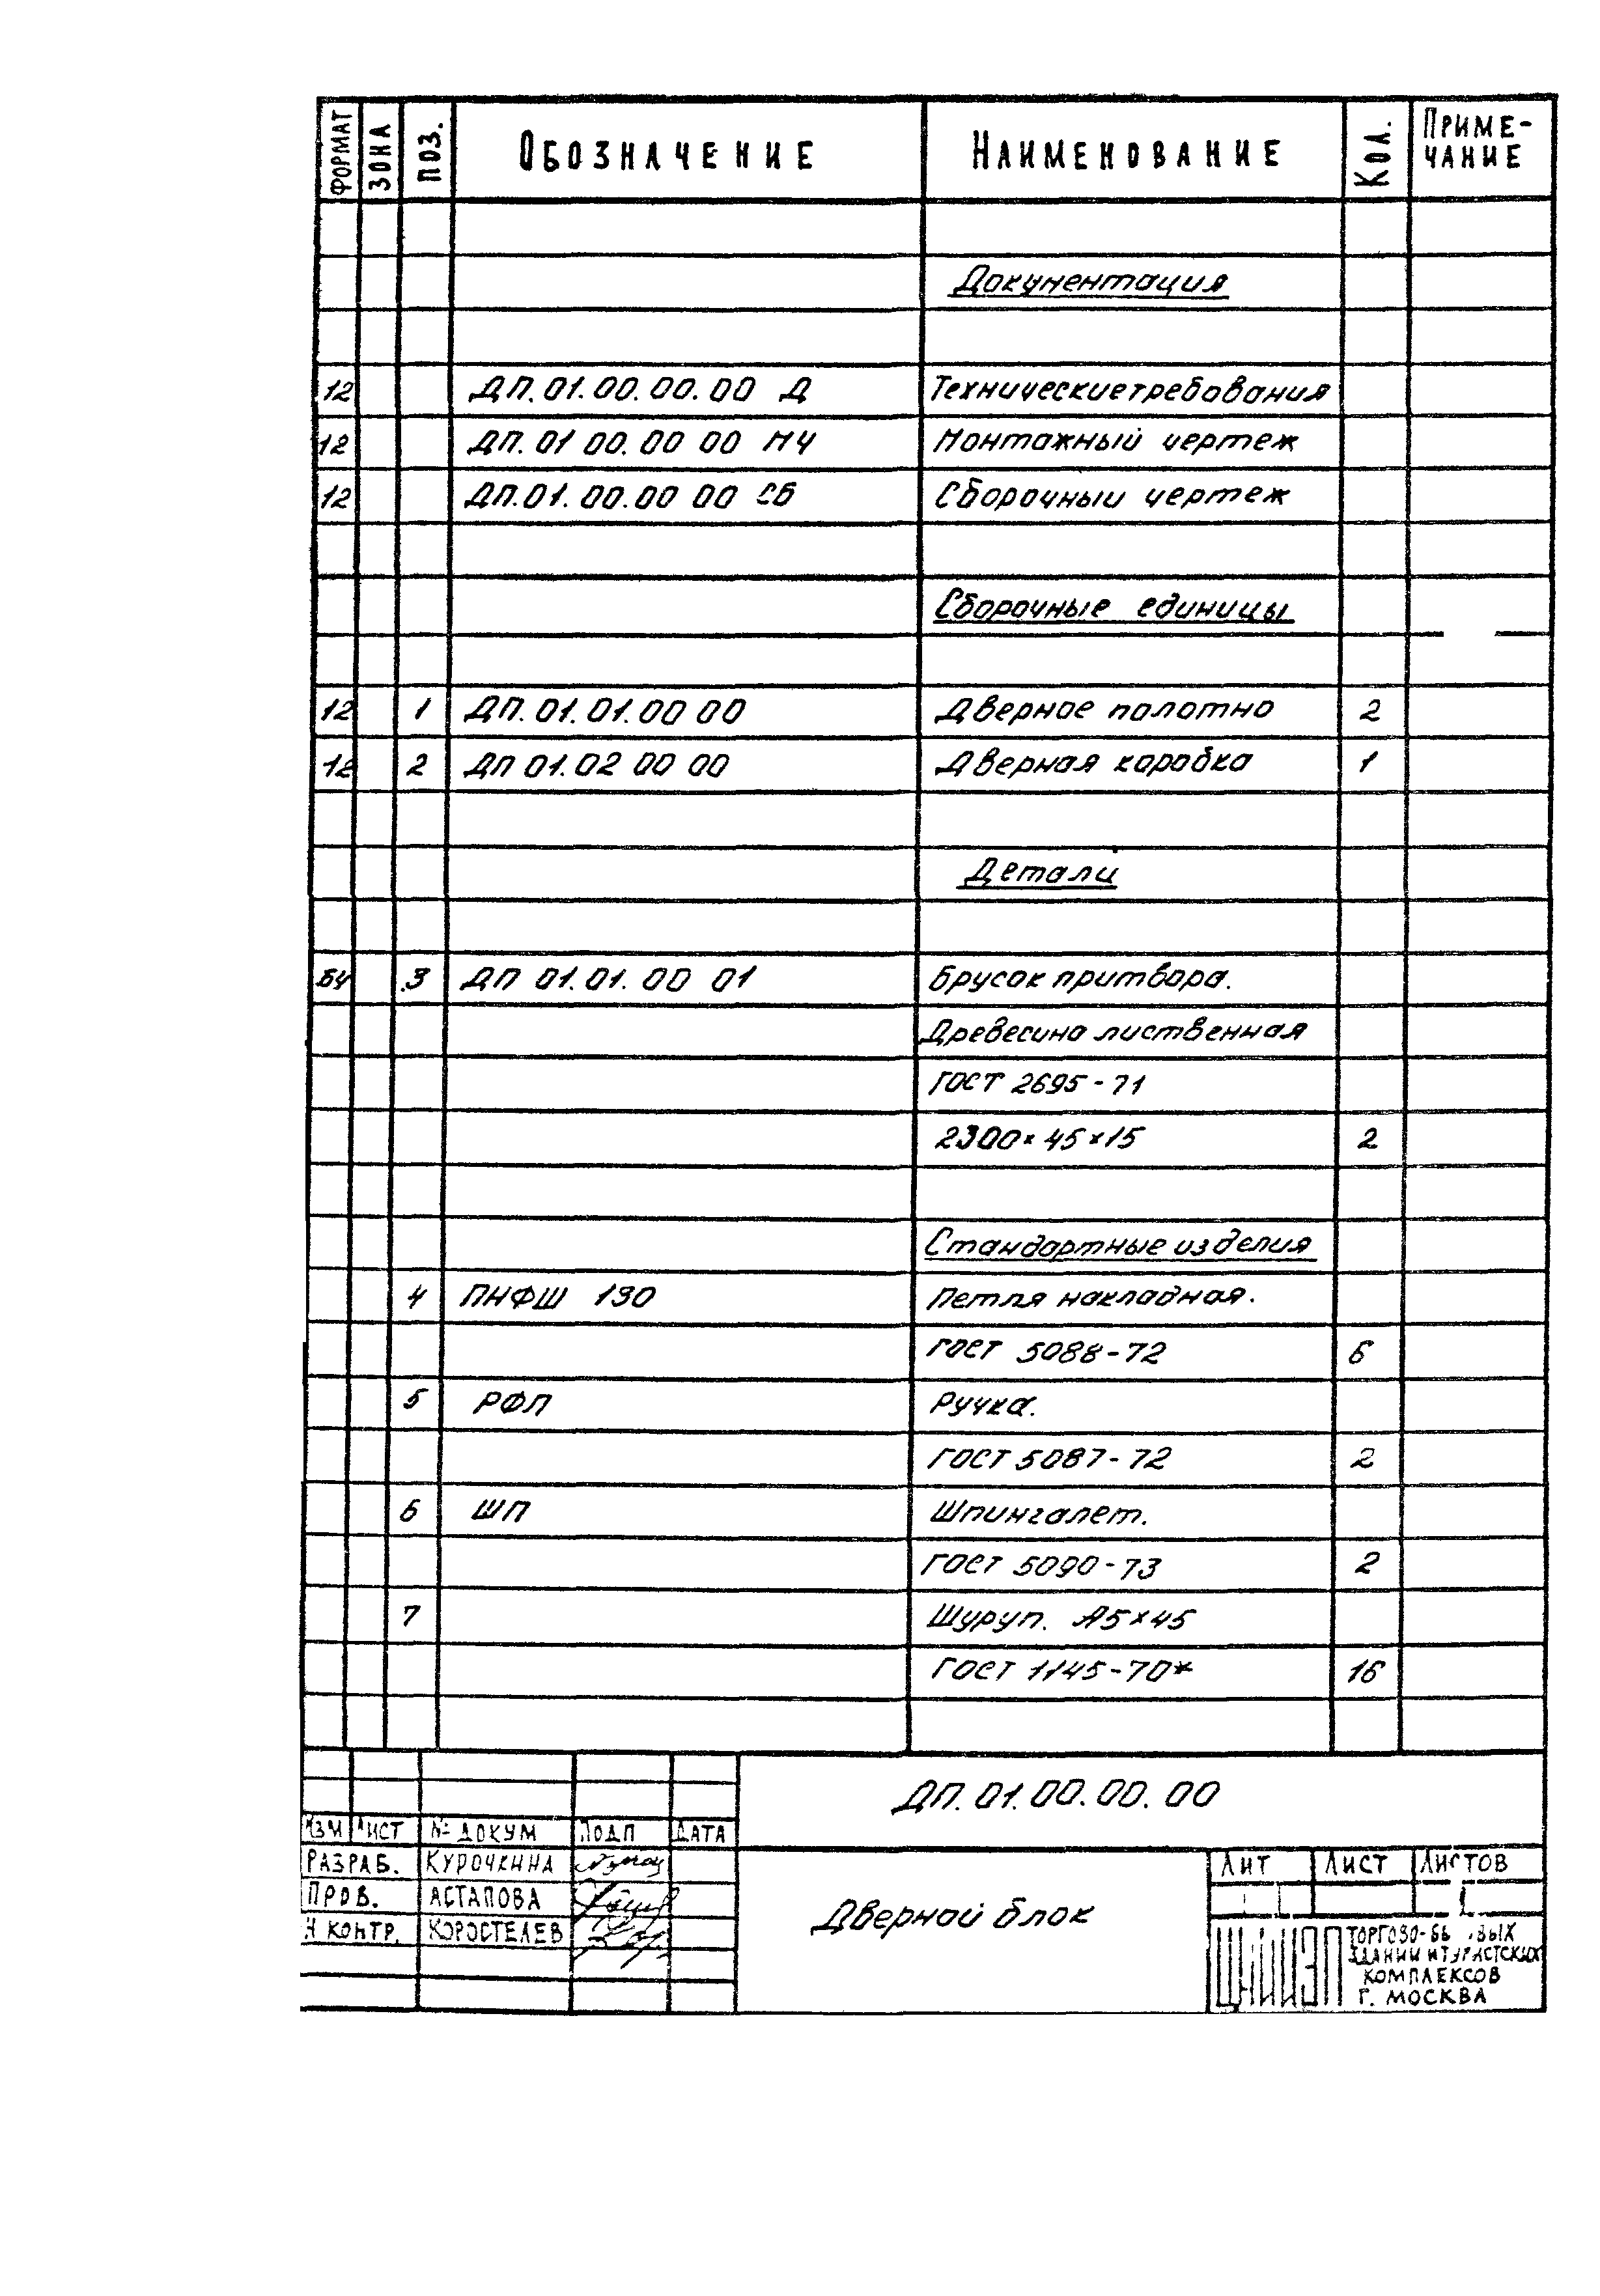 ФОРМАТ ЗОНА ПОЗ. ОБОЗНАЧЕНИЕ НАИМЕНОВАНИЕ КОЛ. ПРИМЕ-
ЧАНИЕ
Документация
12 ДП.01.00.00.00 Д Технические требования
12 ДП.01 00.00 00 МЧ Монтажный чертеж
12 ДП.01.00.00 00 СБ Сборочный чертеж
Сборочные единицы
12 1 ДП.01.01.00 00 Дверное полотно 2
12 2 ДП 01.02 00 00 Дверная коробка 1
Детали
БЧ 3 ДП 01.01.00 01 Брусок притвора.
Древесина лиственная
ГОСТ 2695-71
2300×45×15 2
Стандартные изделия
4 ПНФШ 130 Петля накладная.
ГОСТ 5088-72 6
5 РФП Ручка.
ГОСТ 5087-72 2
6 ШП Шпингалет.
ГОСТ 5090-73 2
7 Шуруп. А5×45
ГОСТ 1145-70* 16
ДП.01.00.00.00
ИЗМ ЛИСТ № ДОКУМ ПОДП ДАТА
РАЗРАБ. КУРОЧКИНА
ПРОВ. АСТАПОВА
Н КОНТР. КОРОСТЕЛЕВ
Дверной блок
ЛИТ ЛИСТ ЛИСТОВ
1
ЦНИИЭП ТОРГОВО-БЫТОВЫХ
ЗДАНИЙ И ТУРИСТСКИХ
КОМПЛЕКСОВ
Г. МОСКВА